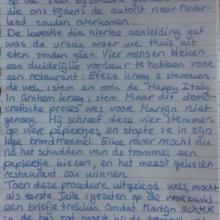 die ons tijdens de autorit naar Neder-
land zouden overkomen...
De kwestie die hiertoe aanleiding gaf
was de vraag waar we thuis uit
eten zouden gaan. Vier mensen bleken
een duidelijke voorkeur te hebben voor
een restaurant: Efeze kreeg 2 stemmen
de welp, stem en ook de Happy Italy
in Arnhem kreeg 1 stem. Maar dit demo-
cratische proces was voor Martijn niet
genoeg. Hij schreef deze vier stemmen
op vier papiertjes en stopte ze in zijn
lege broodtrommel. Elise mocht nu
na het schudden van de trommel een
papiertje kiezen, en het meest gekozen
restaurant zou winnen.
Toen deze procedure uitgelegd was, mocht
als eerste Jelle (gezeten op de
een briefje trekken omdat Martijn achter